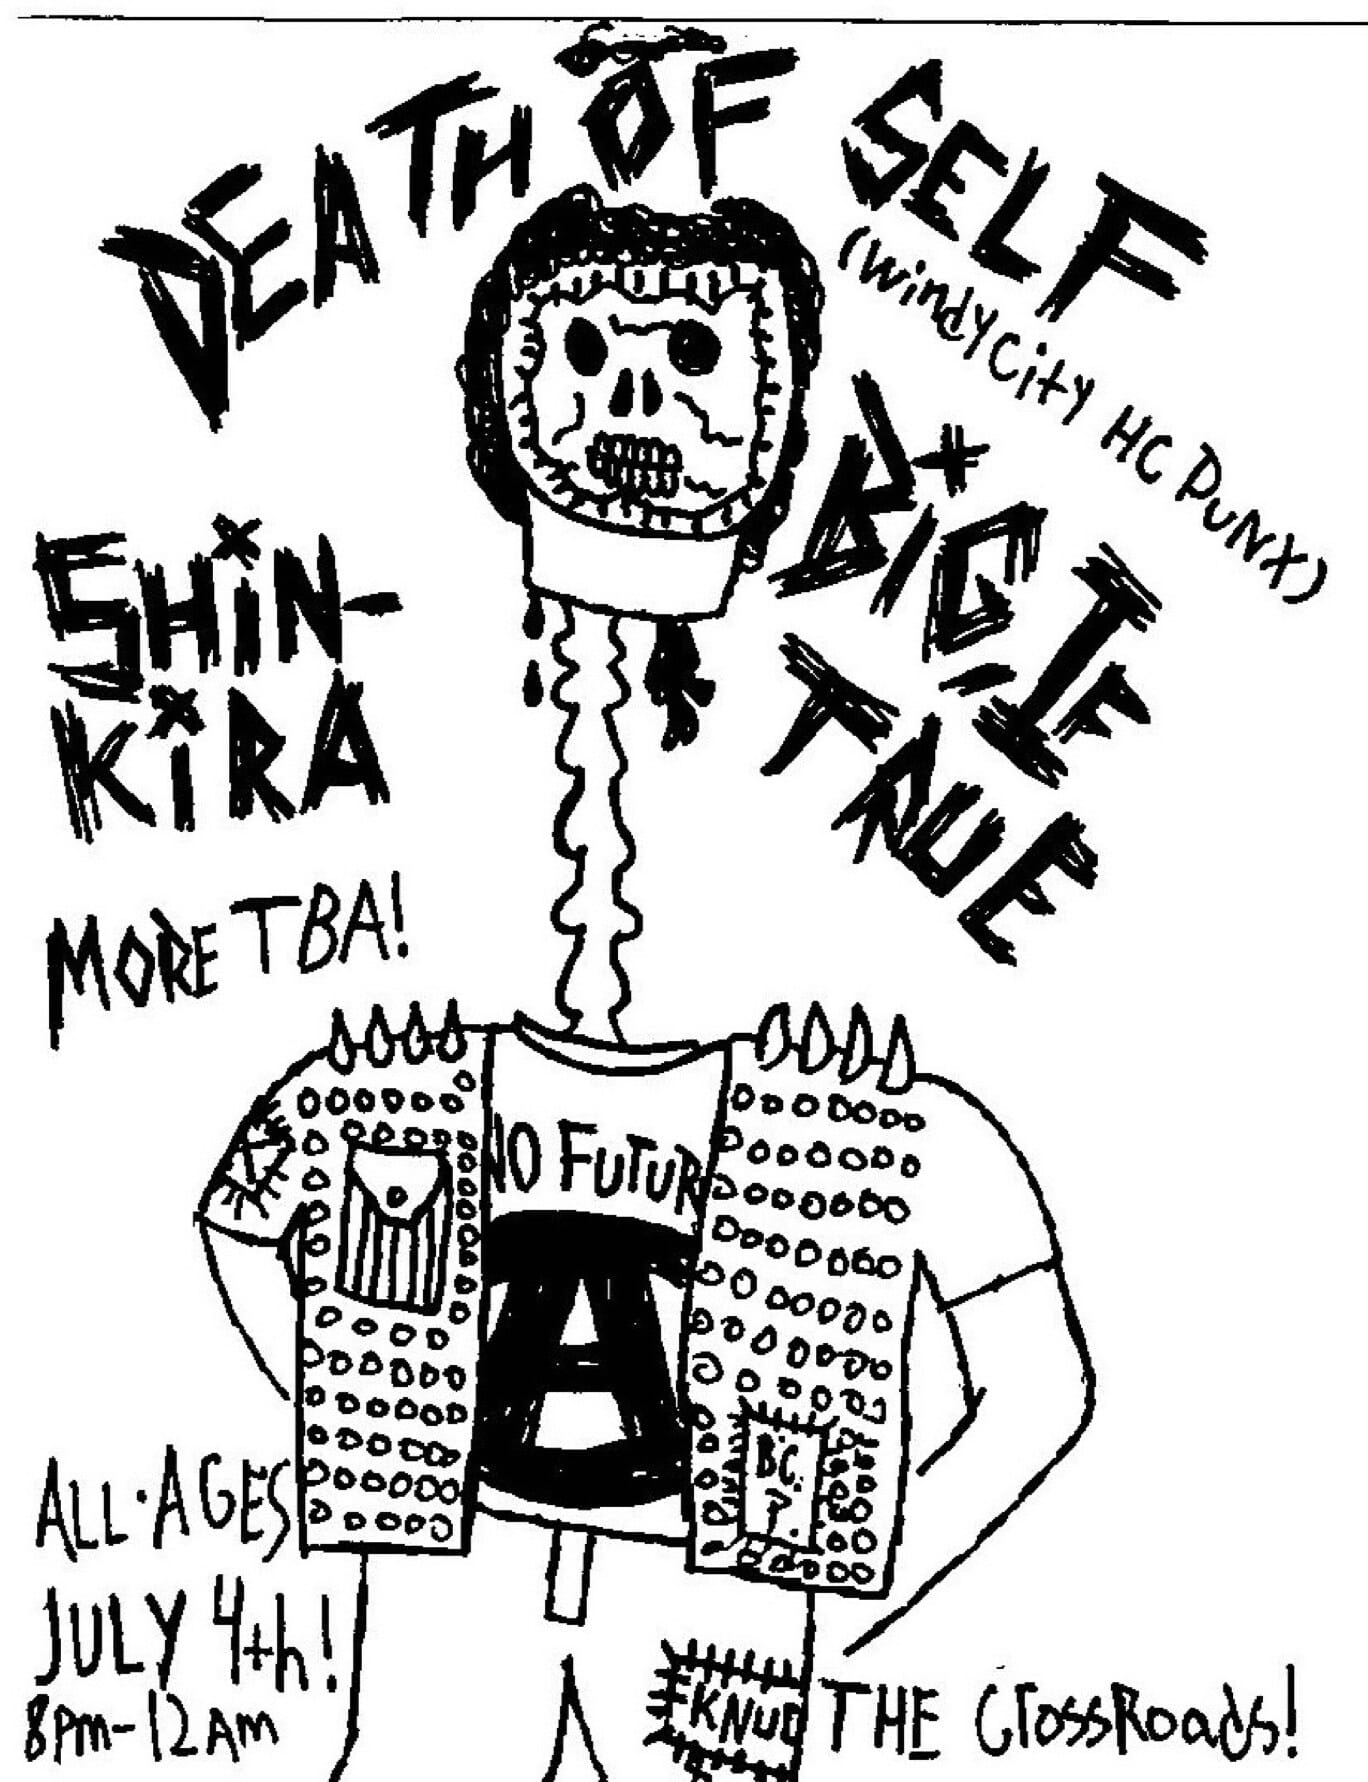 DEATH OF SELF
(WindyCity HC PUNX)
BIG IF
TRUE
SHiN-
KiRA
MORE TBA!
NO FUTUR
A
B.C.
ALL·AGES
JULY 4th!
8pm-12AM
THE CrossRoads!